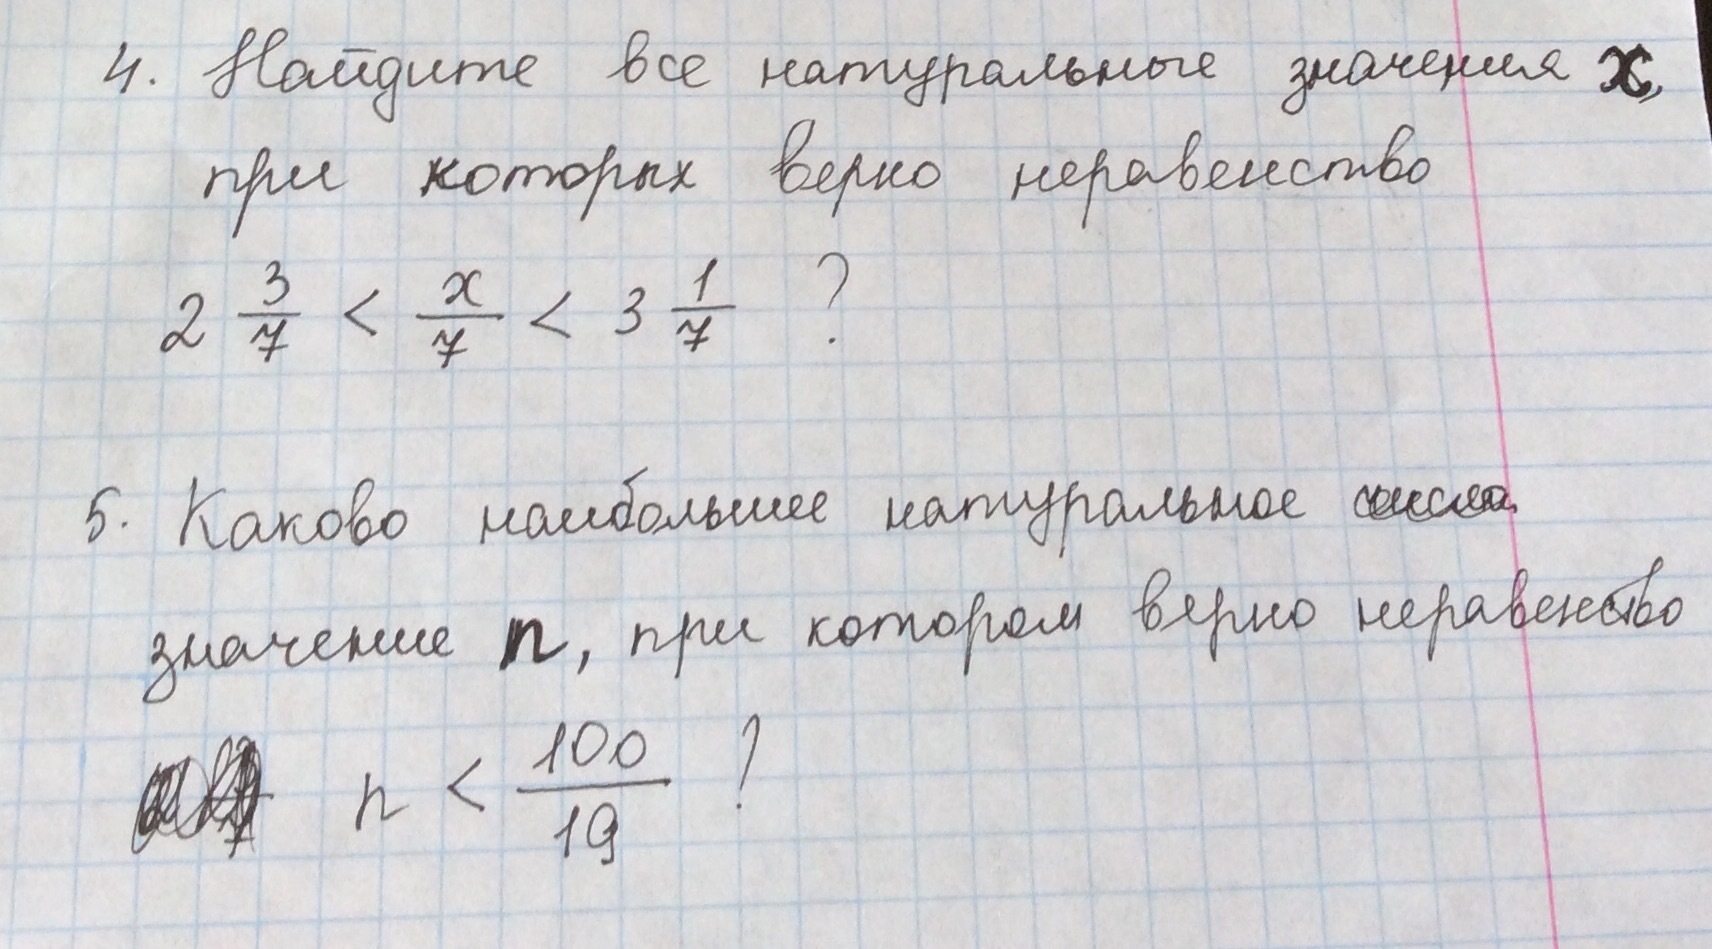 4. Найдите все натуральные значения x,
при которых верно неравенство
2 3/7 < x/7 < 3 1/7 ?
5. Каково наибольшее натуральное
значение n, при котором верно неравенство
n < 100/19 ?